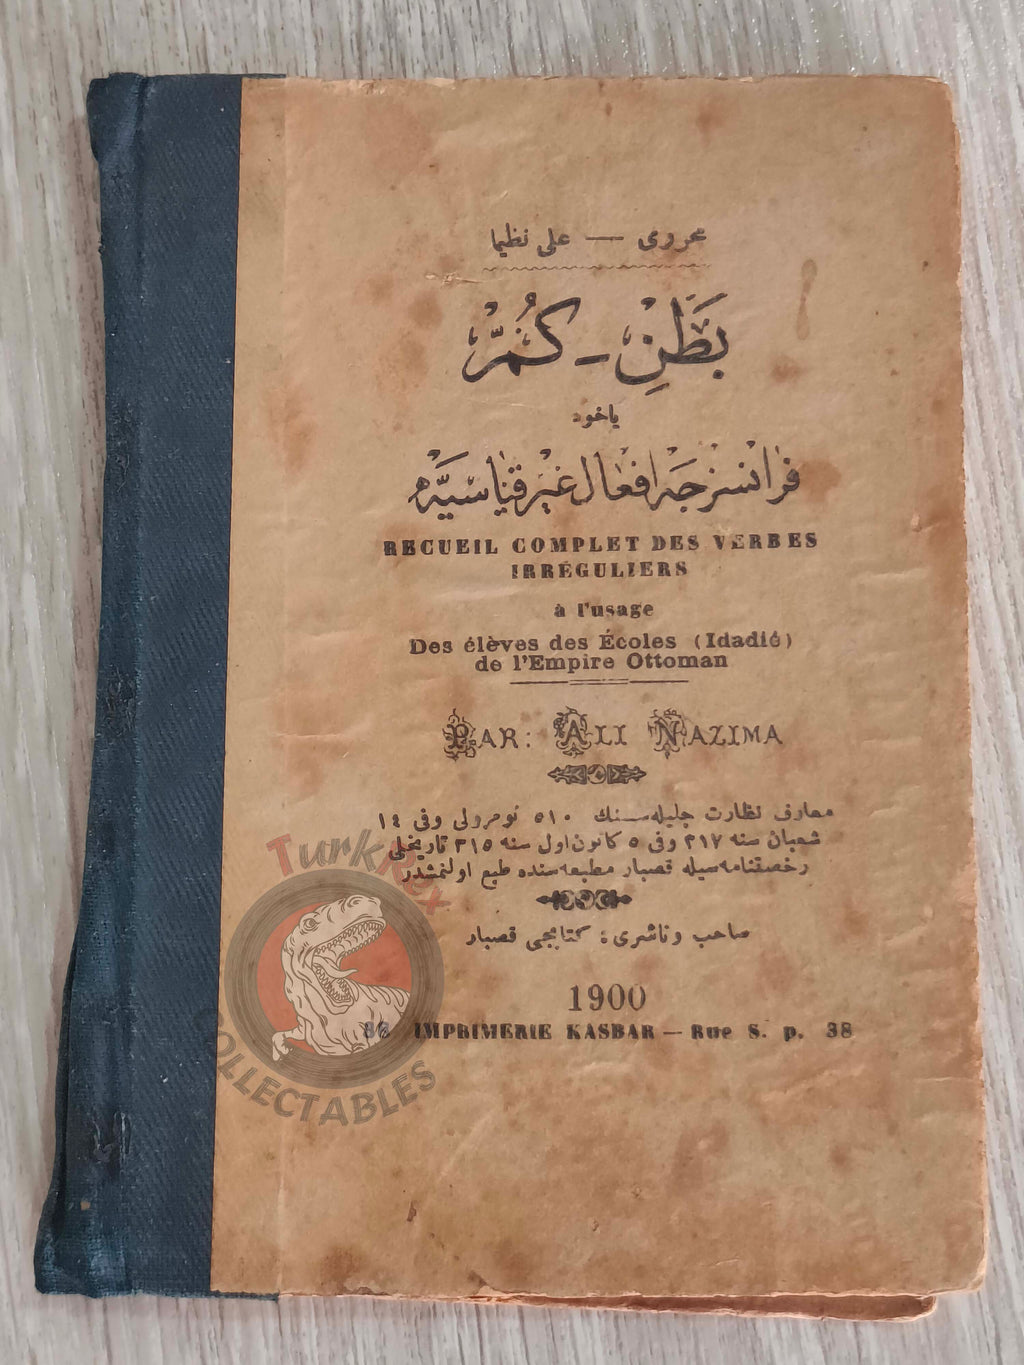 محرری — علی نظیما
بَطَنِ - كُمَّزْ
یاخود
فرانسزجه افعال غیر قیاسیه
RECUEIL COMPLET DES VERBES
IRRÉGULIERS
à l'usage
Des élèves des Écoles (Idadié)
de l'Empire Ottoman
PAR: ALI NAZIMA
معارف نظارت جلیله‌سنك ٥١٠ نومرولی وفی ١٤
شعبان سنه ٣١٧ وفی ٥ كانون اول سنه ٣١٥ تاریخلی
رخصتنامه‌سیله قصبار مطبعه‌سنده طبع اولنمشدر
صاحب وناشری : كتابجی قصبار
1900
38 IMPRIMERIE KASBAR — Rue S. p. 38
TurkRex
COLLECTABLES